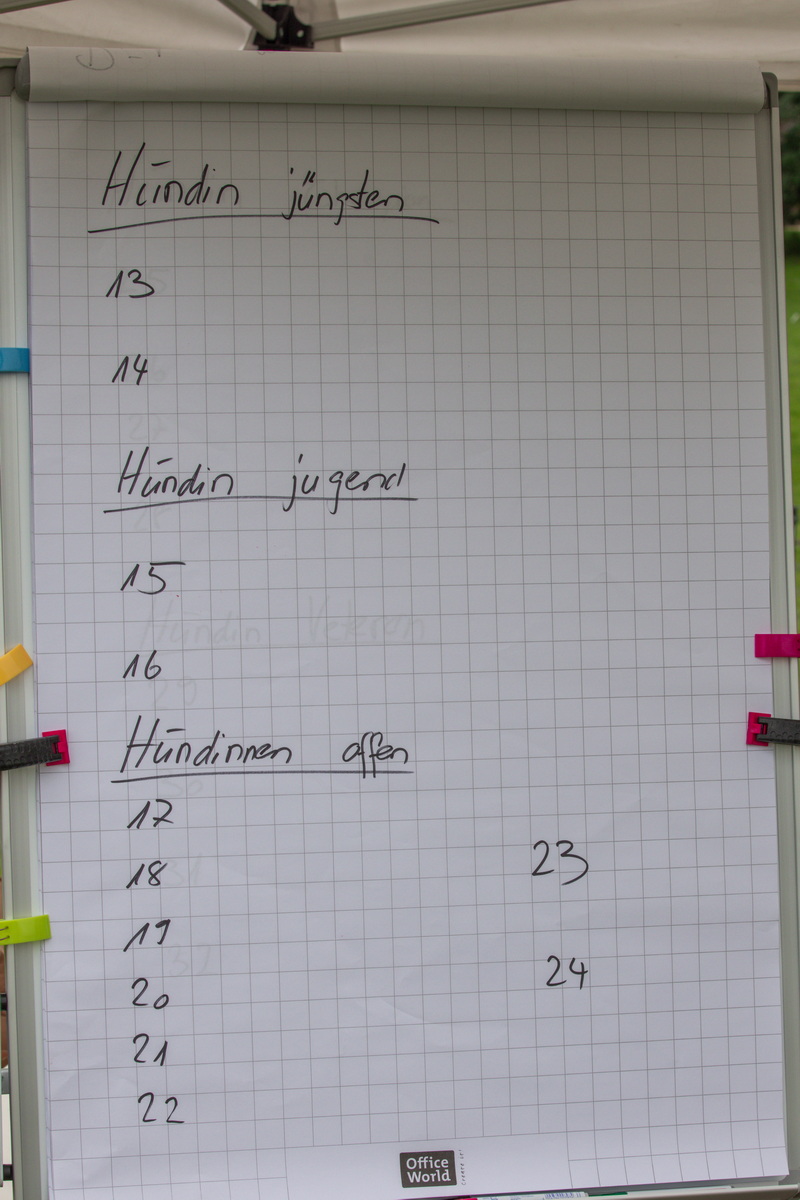 Hündin jüngsten
13
14
Hündin jugend
15
16
Hündinnen offen
17
18
19
20
21
22
23
24
Hündin Veteran
29
Office
World